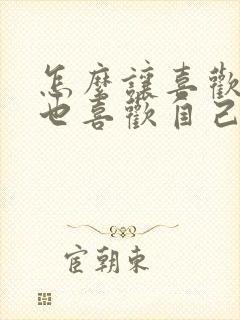 怎麼讓喜歡
也喜歡自己
宦朝東